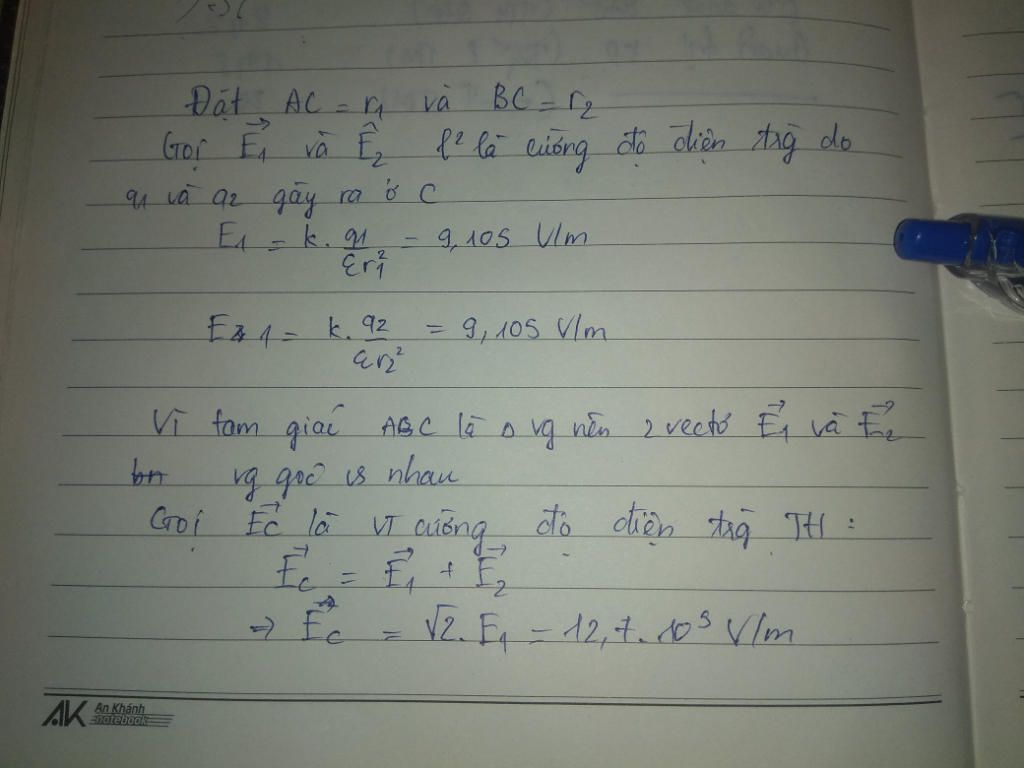 Đặt AC = r₁ và BC = r₂
Gọi E₁→ và E₂→ l² là cường độ điện trg do
q₁ và q₂ gây ra ở C
E₁ = k. q₁/εr₁² = 9,105 V/m
1 = k. q₂/εr₂² = 9,105 V/m
Vì tam giác ABC là Δ vg nên 2 vectơ E₁→ và E₂→
vg góc vs nhau
Gọi Ec→ là VT cường độ điện trg TH :
Ec→ = E₁→ + E₂→
⇒ Ec→ = √2. E₁ = 12,7. 10⁵ V/m
AK An Khánh
notebook